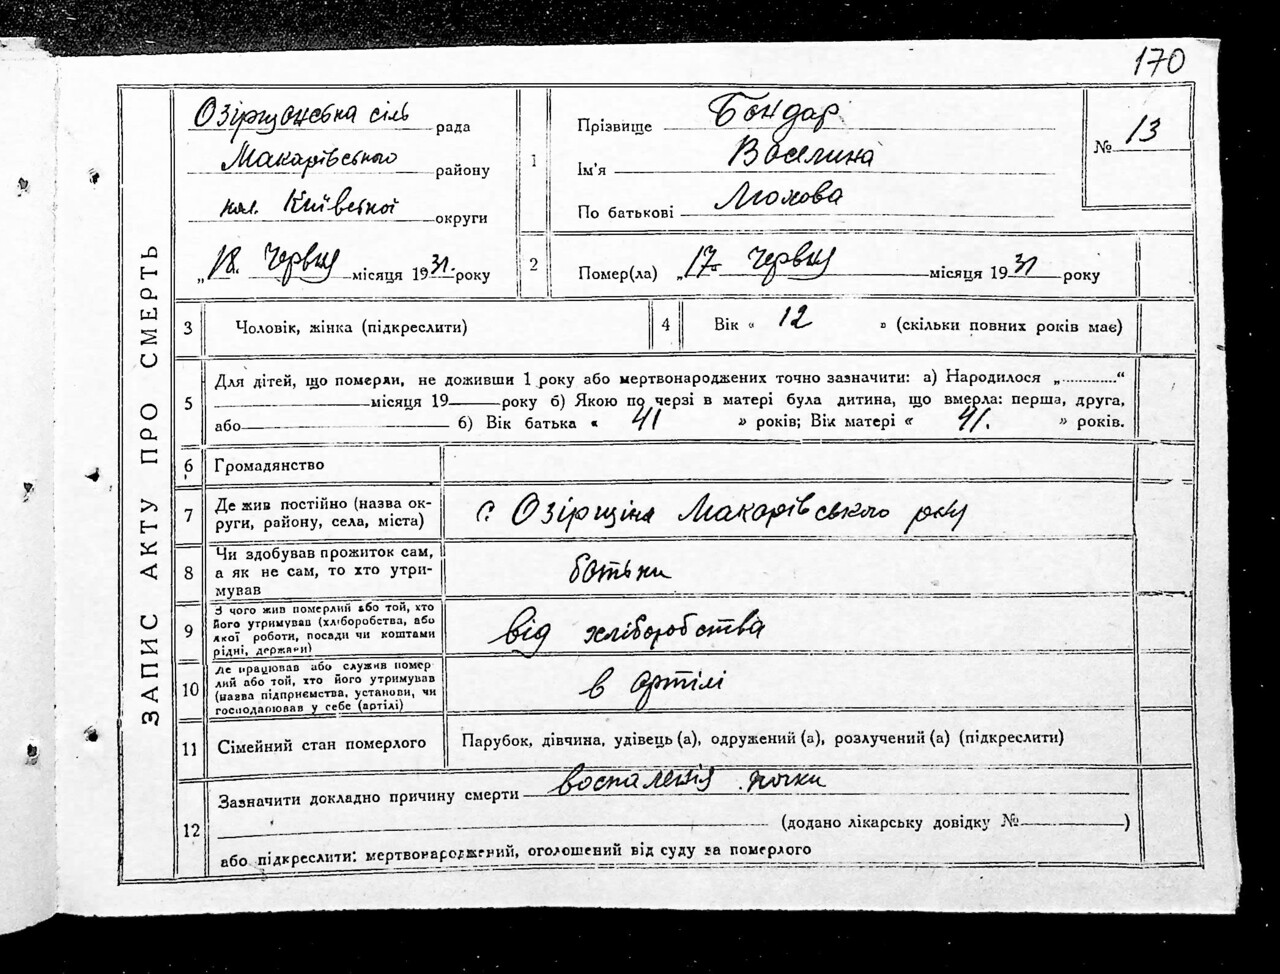 170
ЗАПИС АКТУ ПРО СМЕРТЬ
Озірщанська сіль рада
Макарівського району
Київської округи
„18. червня місяця 1931. року
1 Прізвище Бондар
Ім'я Василина
По батькові
№ 13
2 Помер(ла) „17 червня місяця 1931 року
3 Чоловік, жінка (підкреслити)
4 Вік « 12 » (скільки повних років має)
5 Для дітей, що померли, не доживши 1 року або мертвонароджених точно зазначити: а) Народилося „............“
місяця 19 року б) Якою по черзі в матері була дитина, що вмерла: перша, друга,
або б) Вік батька « 41 » років; Вік матері « 41. » років.
6 Громадянство
7 Де жив постійно (назва ок-
руги, району, села, міста)
с. Озірщина Макарівського р-ну
8 Чи здобував прожиток сам,
а як не сам, то хто утри-
мував
батьки
9 З чого жив померлий або той, хто
його утримував (хліборобства, або
якої роботи, посади чи коштами
рідні, держави)
від хліборобства
10 Де працював або служив помер
лий або той, хто його утримував
(назва підприємства, установи, чи
господарював у себе (артілі)
в артілі
11 Сімейний стан померлого
Парубок, дівчина, удівець (а), одружений (а), розлучений (а) (підкреслити)
12 Зазначити докладно причину смерти воспаленія почки
(додано лікарську довідку № )
або підкреслити: мертвонароджений, оголошений від суду за померлого